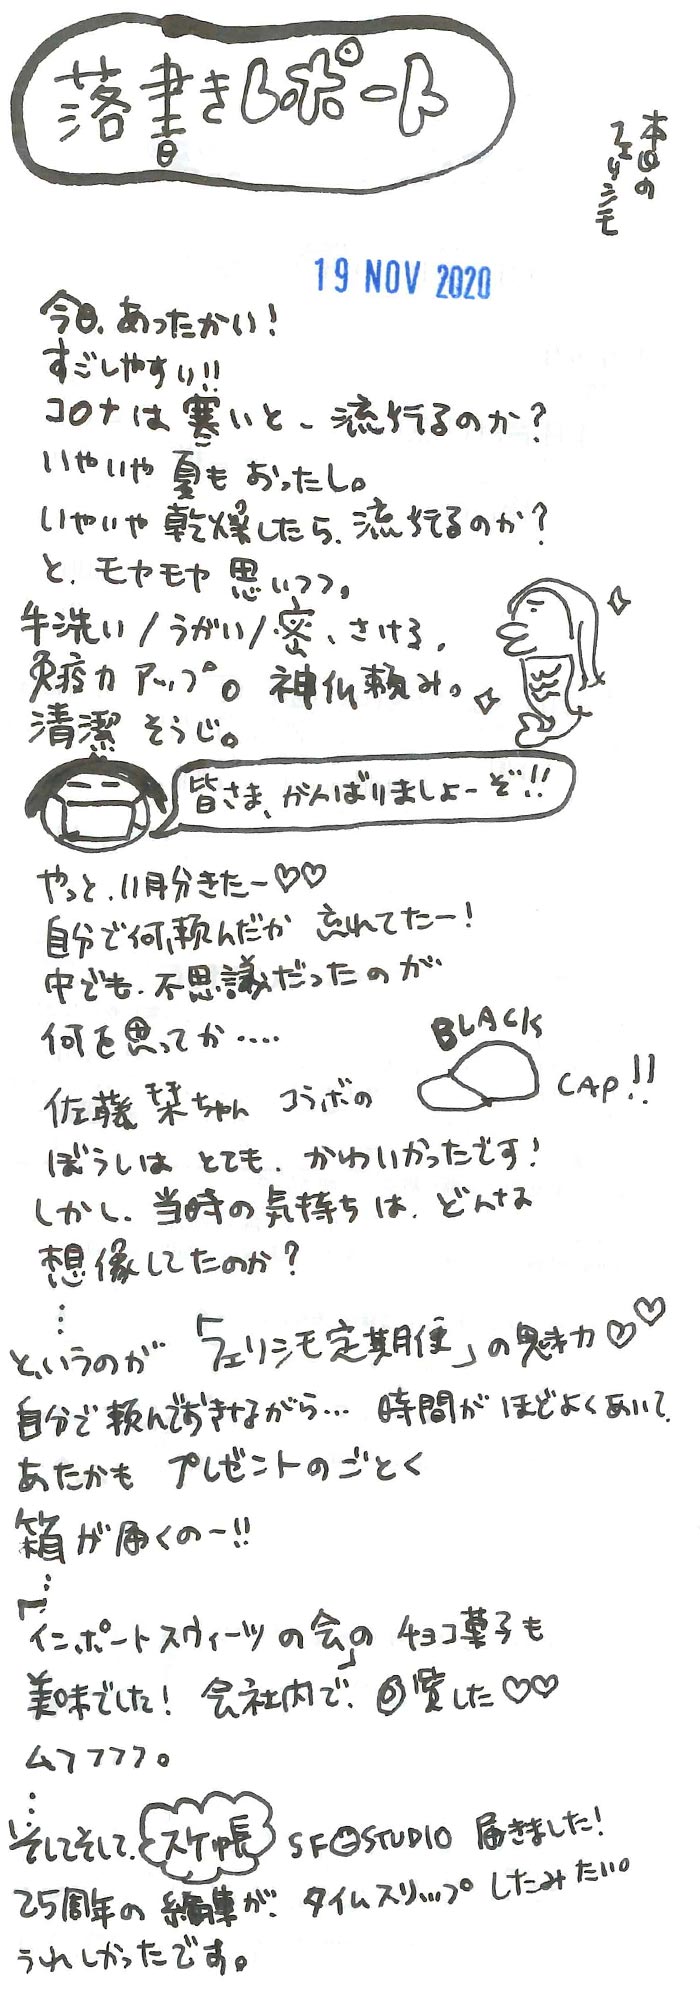 落書きレポート
本日の
フェリシモ
19 NOV 2020
今日、あったかい!
すごしやすい!!
コロナは寒いと、流行るのか?
いやいや夏もおったし。
いやいや乾燥したら、流行るのか?
と、モヤモヤ思いつつ。
手洗い/うがい/密、さける、
免疫力アップ。神仏頼み。
清潔そうじ。
皆さま、がんばりましょーぞ!!
やっと、11月分きたー♡♡
自分で何、頼んだか 忘れてたー!
中でも、不思議だったのが
何を思ってか‥‥
BLACK
CAP!!
佐藤栞ちゃん コラボの
ぼうしは とても、かわいかったです!
しかし、当時の気持ちは、どんな
想像してたのか?
というのが 「フェリシモ定期便」の魅力♡♡
自分で頼んでおきながら… 時間がほどよくあいて、
あたかも プレゼントのごとく
箱が届くの〜!!
「インポートスウィーツの会」の チョコ菓子も
美味でした! 会社内で、回覧した♡♡
ムフフフフ。
そしてそして、スケ帳 SF STUDIO 届きました!
25周年の 編集が、タイムスリップしたみたい。
うれしかったです。